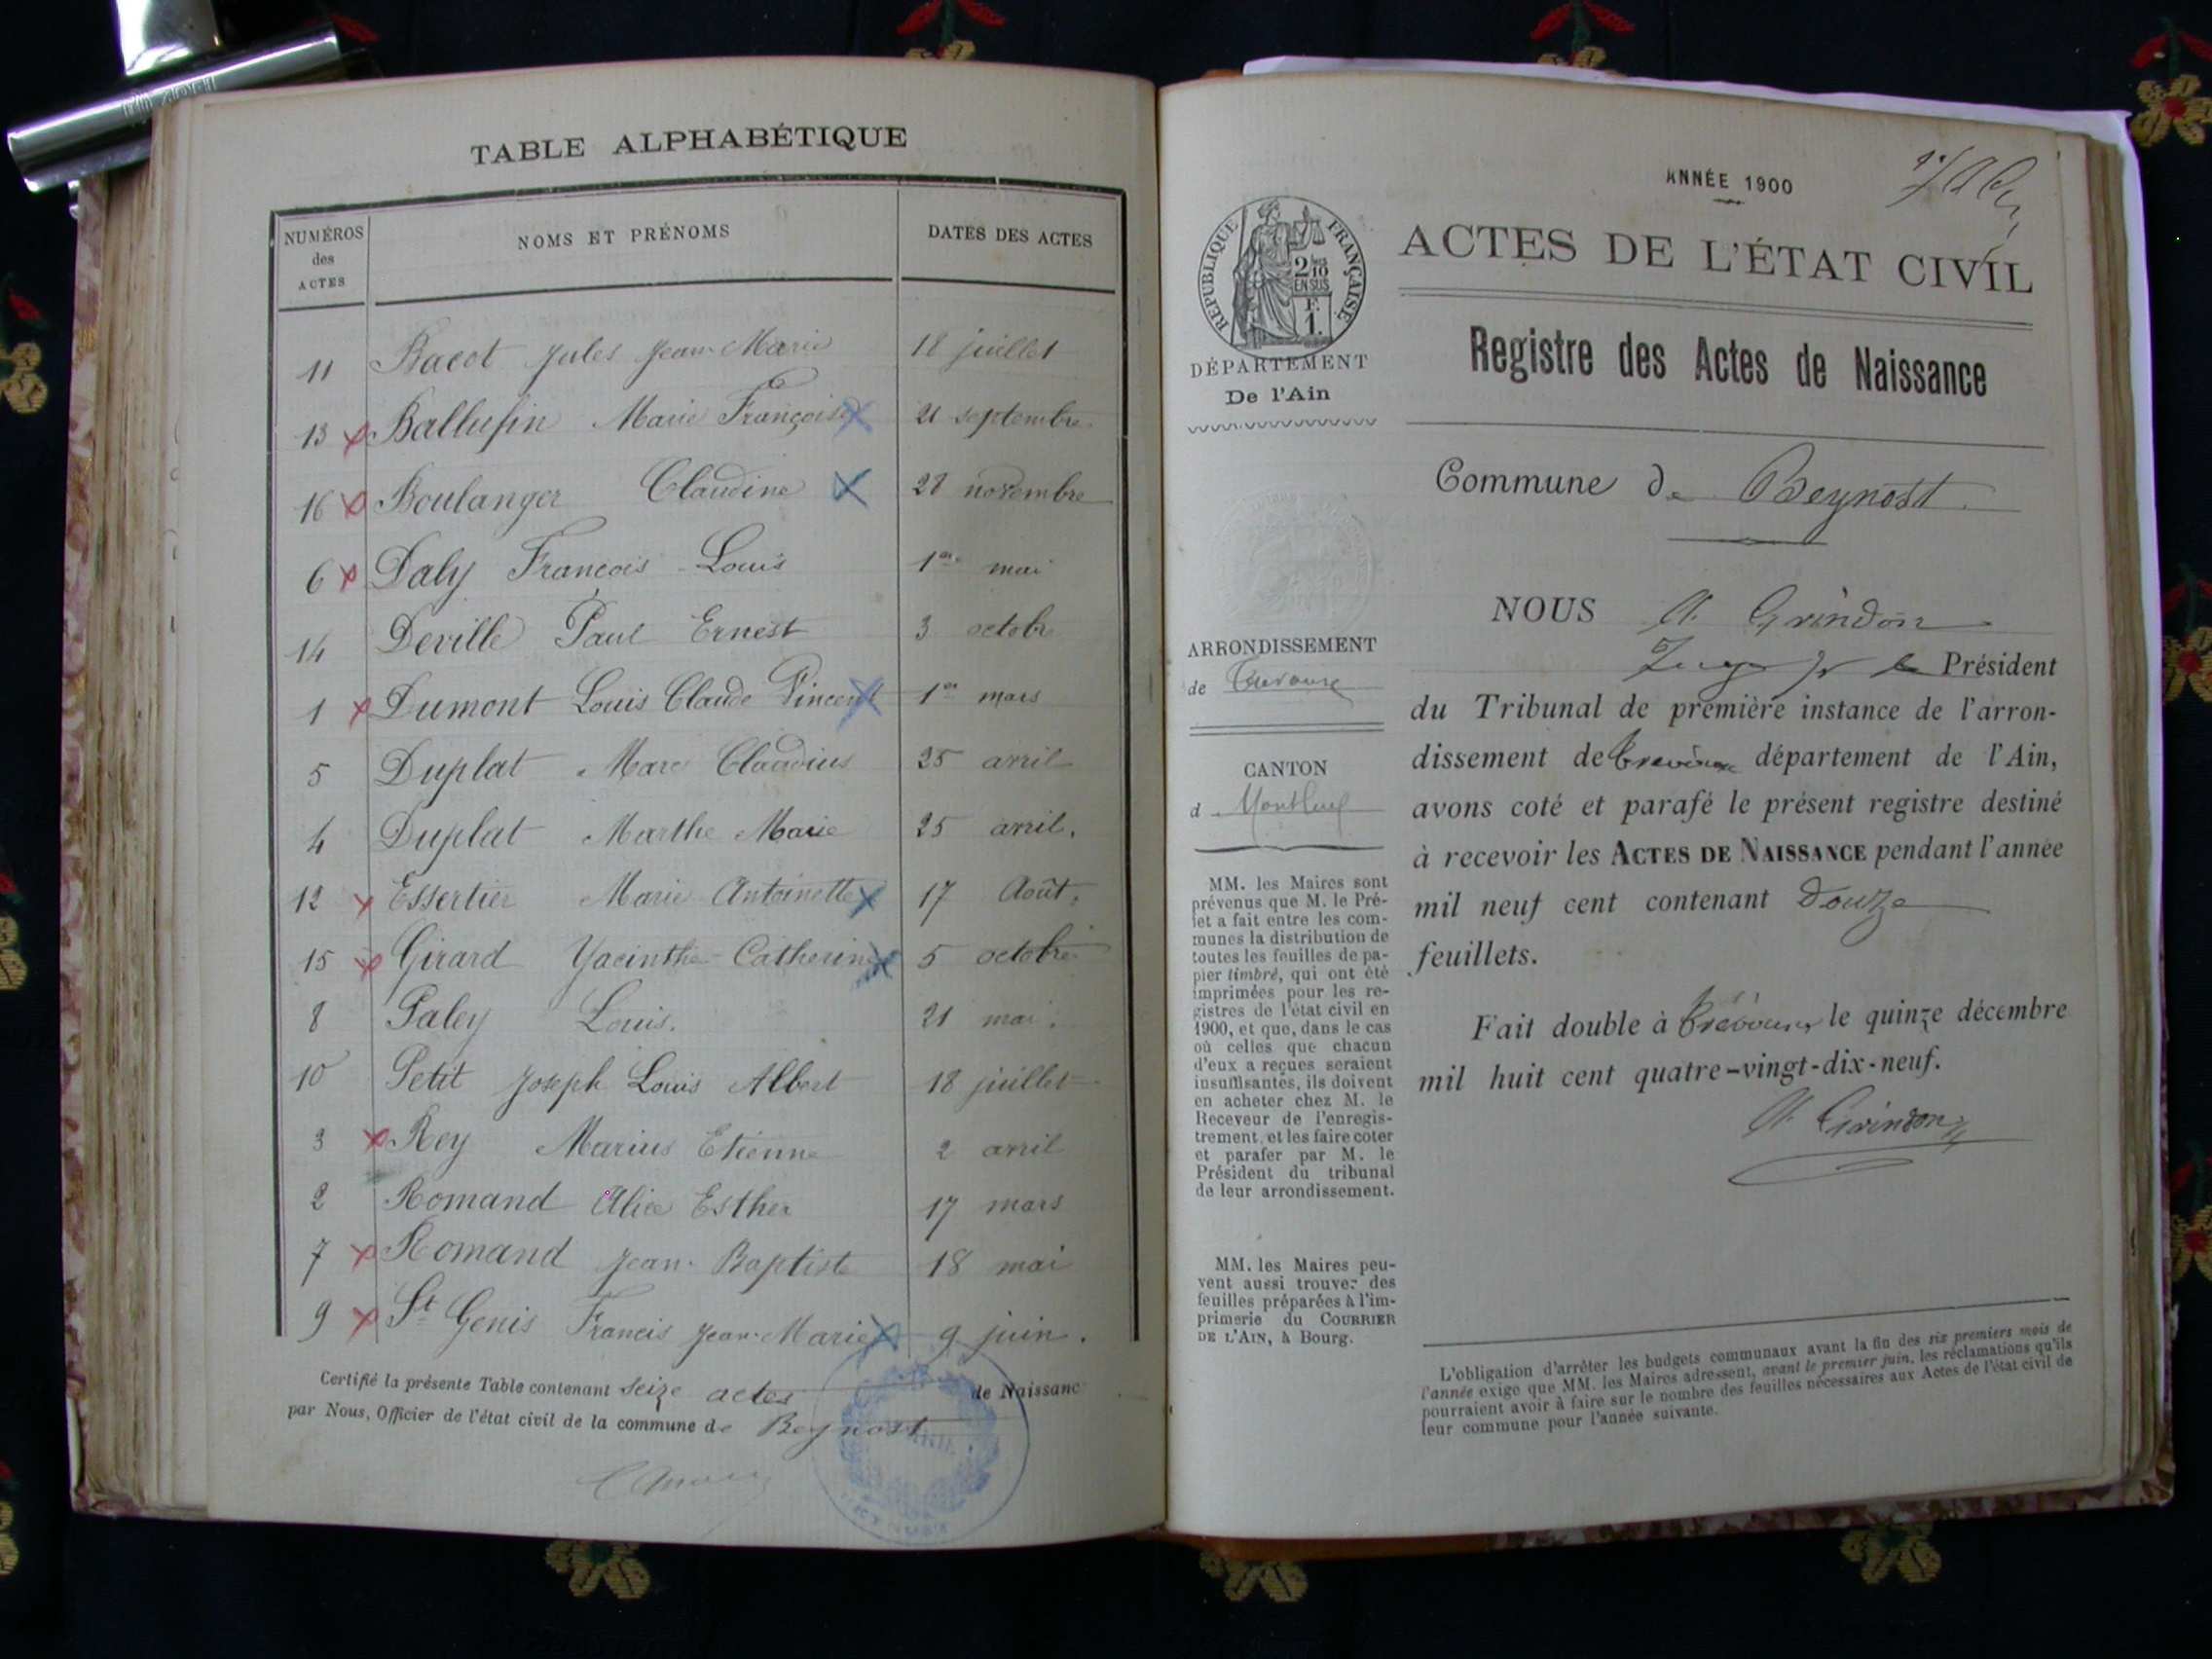 TABLE ALPHABÉTIQUE
NUMÉROS des ACTES NOMS ET PRÉNOMS DATES DES ACTES
11 Bacot Jules Jean-Marie 18 juillet
13 Ballufin Marie Françoise 21 septembre
16 Boulanger Claudine 28 novembre
6 Daly François Louis 1er mai
14 Deville Paul Ernest 3 octobre
1 Dumont Louis Claude Vincent 1er mars
5 Duplat Marc Claudius 25 avril
4 Duplat Marthe Marie 25 avril.
12 Essertier Marie Antoinette 17 Août.
15 Girard Yacinthe Catherine 5 octobre
8 Paley Louis. 21 mai.
10 Petit Joseph Louis Albert 18 juillet
3 Rey Marius Etienne 2 avril
2 Romand Alice Esther 17 mars
7 Romand Jean-Baptiste 18 mai
9 St Genis Francis Jean-Marie 9 juin.
Certifié la présente Table contenant seize actes de Naissanc
par Nous, Officier de l'état civil de la commune de Beynost
ANNÉE 1900
RÉPUBLIQUE FRANÇAISE
2/10 EN SUS
F. 1.
DÉPARTEMENT
De l'Ain
ARRONDISSEMENT
de Trévoux
CANTON
d Montluel
MM. les Maires sont
prévenus que M. le Pré-
fet a fait entre les com-
munes la distribution de
toutes les feuilles de pa-
pier timbré, qui ont été
imprimées pour les re-
gistres de l'état civil en
1900, et que, dans le cas
où celles que chacun
d'eux a reçues seraient
insuffisantes, ils doivent
en acheter chez M. le
Receveur de l'enregis-
trement, et les faire coter
et parafer par M. le
Président du tribunal
de leur arrondissement.
MM. les Maires peu-
vent aussi trouver des
feuilles préparées à l'im-
primerie du COURRIER
DE L'AIN, à Bourg.
ACTES DE L'ÉTAT CIVIL
Registre des Actes de Naissance
Commune de Beynost.
NOUS A. Grindon
Juge pr le Président
du Tribunal de première instance de l'arron-
dissement de Trévoux département de l'Ain,
avons coté et parafé le présent registre destiné
à recevoir les ACTES DE NAISSANCE pendant l'année
mil neuf cent contenant Douze
feuillets.
Fait double à Trévoux le quinze décembre
mil huit cent quatre-vingt-dix-neuf.
A. Grindon
L'obligation d'arrêter les budgets communaux avant la fin des six premiers mois de
l'année exige que MM. les Maires adressent, avant le premier juin, les réclamations qu'ils
pourraient avoir à faire sur le nombre des feuilles nécessaires aux Actes de l'état civil de
leur commune pour l'année suivante.